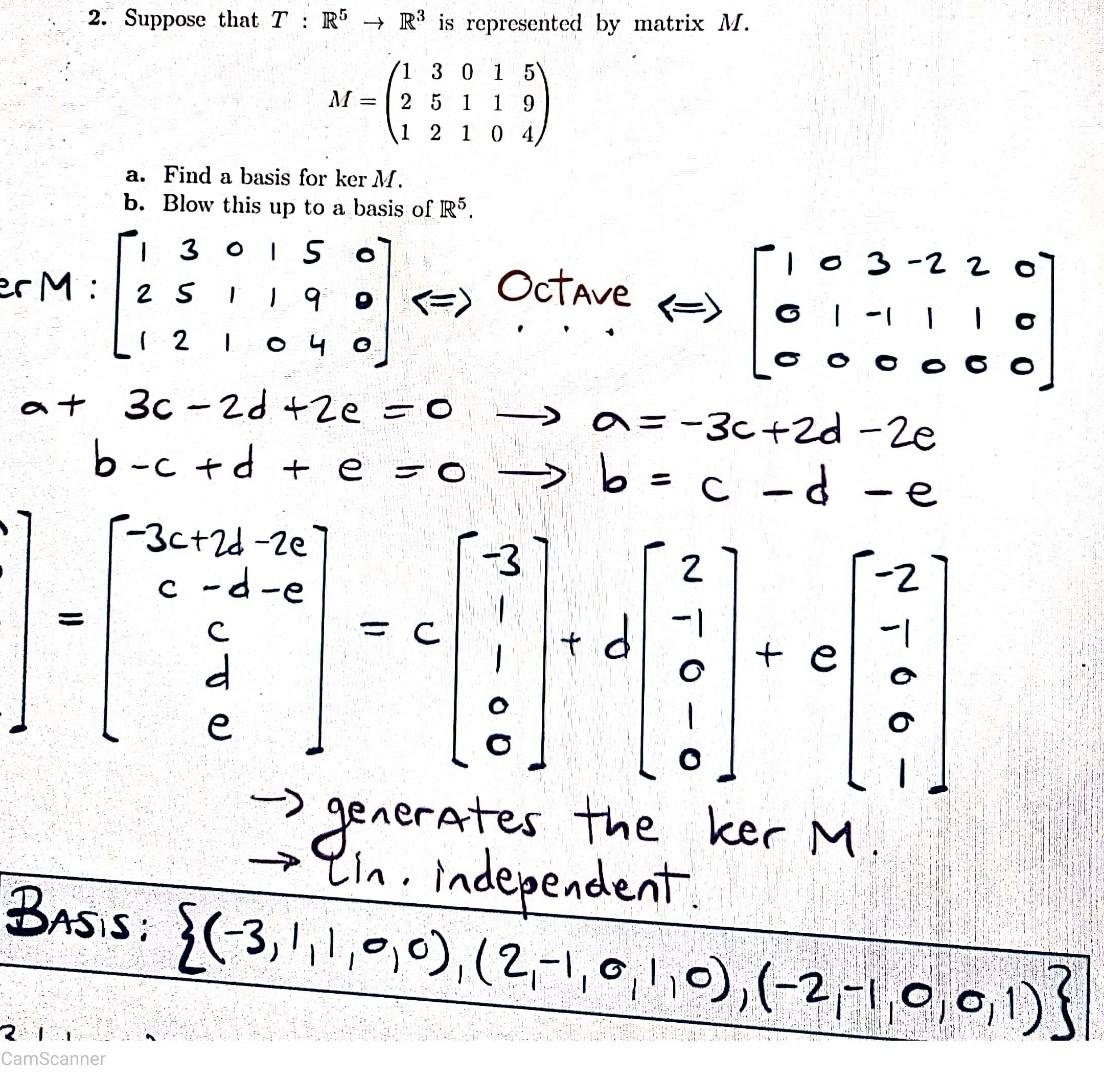 2. Suppose that T : ℝ⁵ → ℝ³ is represented by matrix M.
M = (1 3 0 1 5
2 5 1 1 9
1 2 1 0 4)
a. Find a basis for ker M.
b. Blow this up to a basis of ℝ⁵.
er M : [1 3 0 1 5 0 <=> OCTAVE <=> [1 0 3 -2 2 0
2 5 1 1 9 0 . . . 0 1 -1 1 1 0
1 2 1 0 4 0] 0 0 0 0 0 0]
a + 3c - 2d + 2e = 0 → a = -3c + 2d - 2e
b - c + d + e = 0 → b = c - d - e
] = [-3c+2d-2e = c [-3 + d [2 + e [-2
c - d - e 1 -1 -1
c 1 0 0
d 0 1 0
e] 0] 0] 1]
→ generates the ker M.
→ Lin. independent.
BASIS: {(-3,1,1,0,0),(2,-1,0,1,0),(-2,-1,0,0,1)}
CamScanner